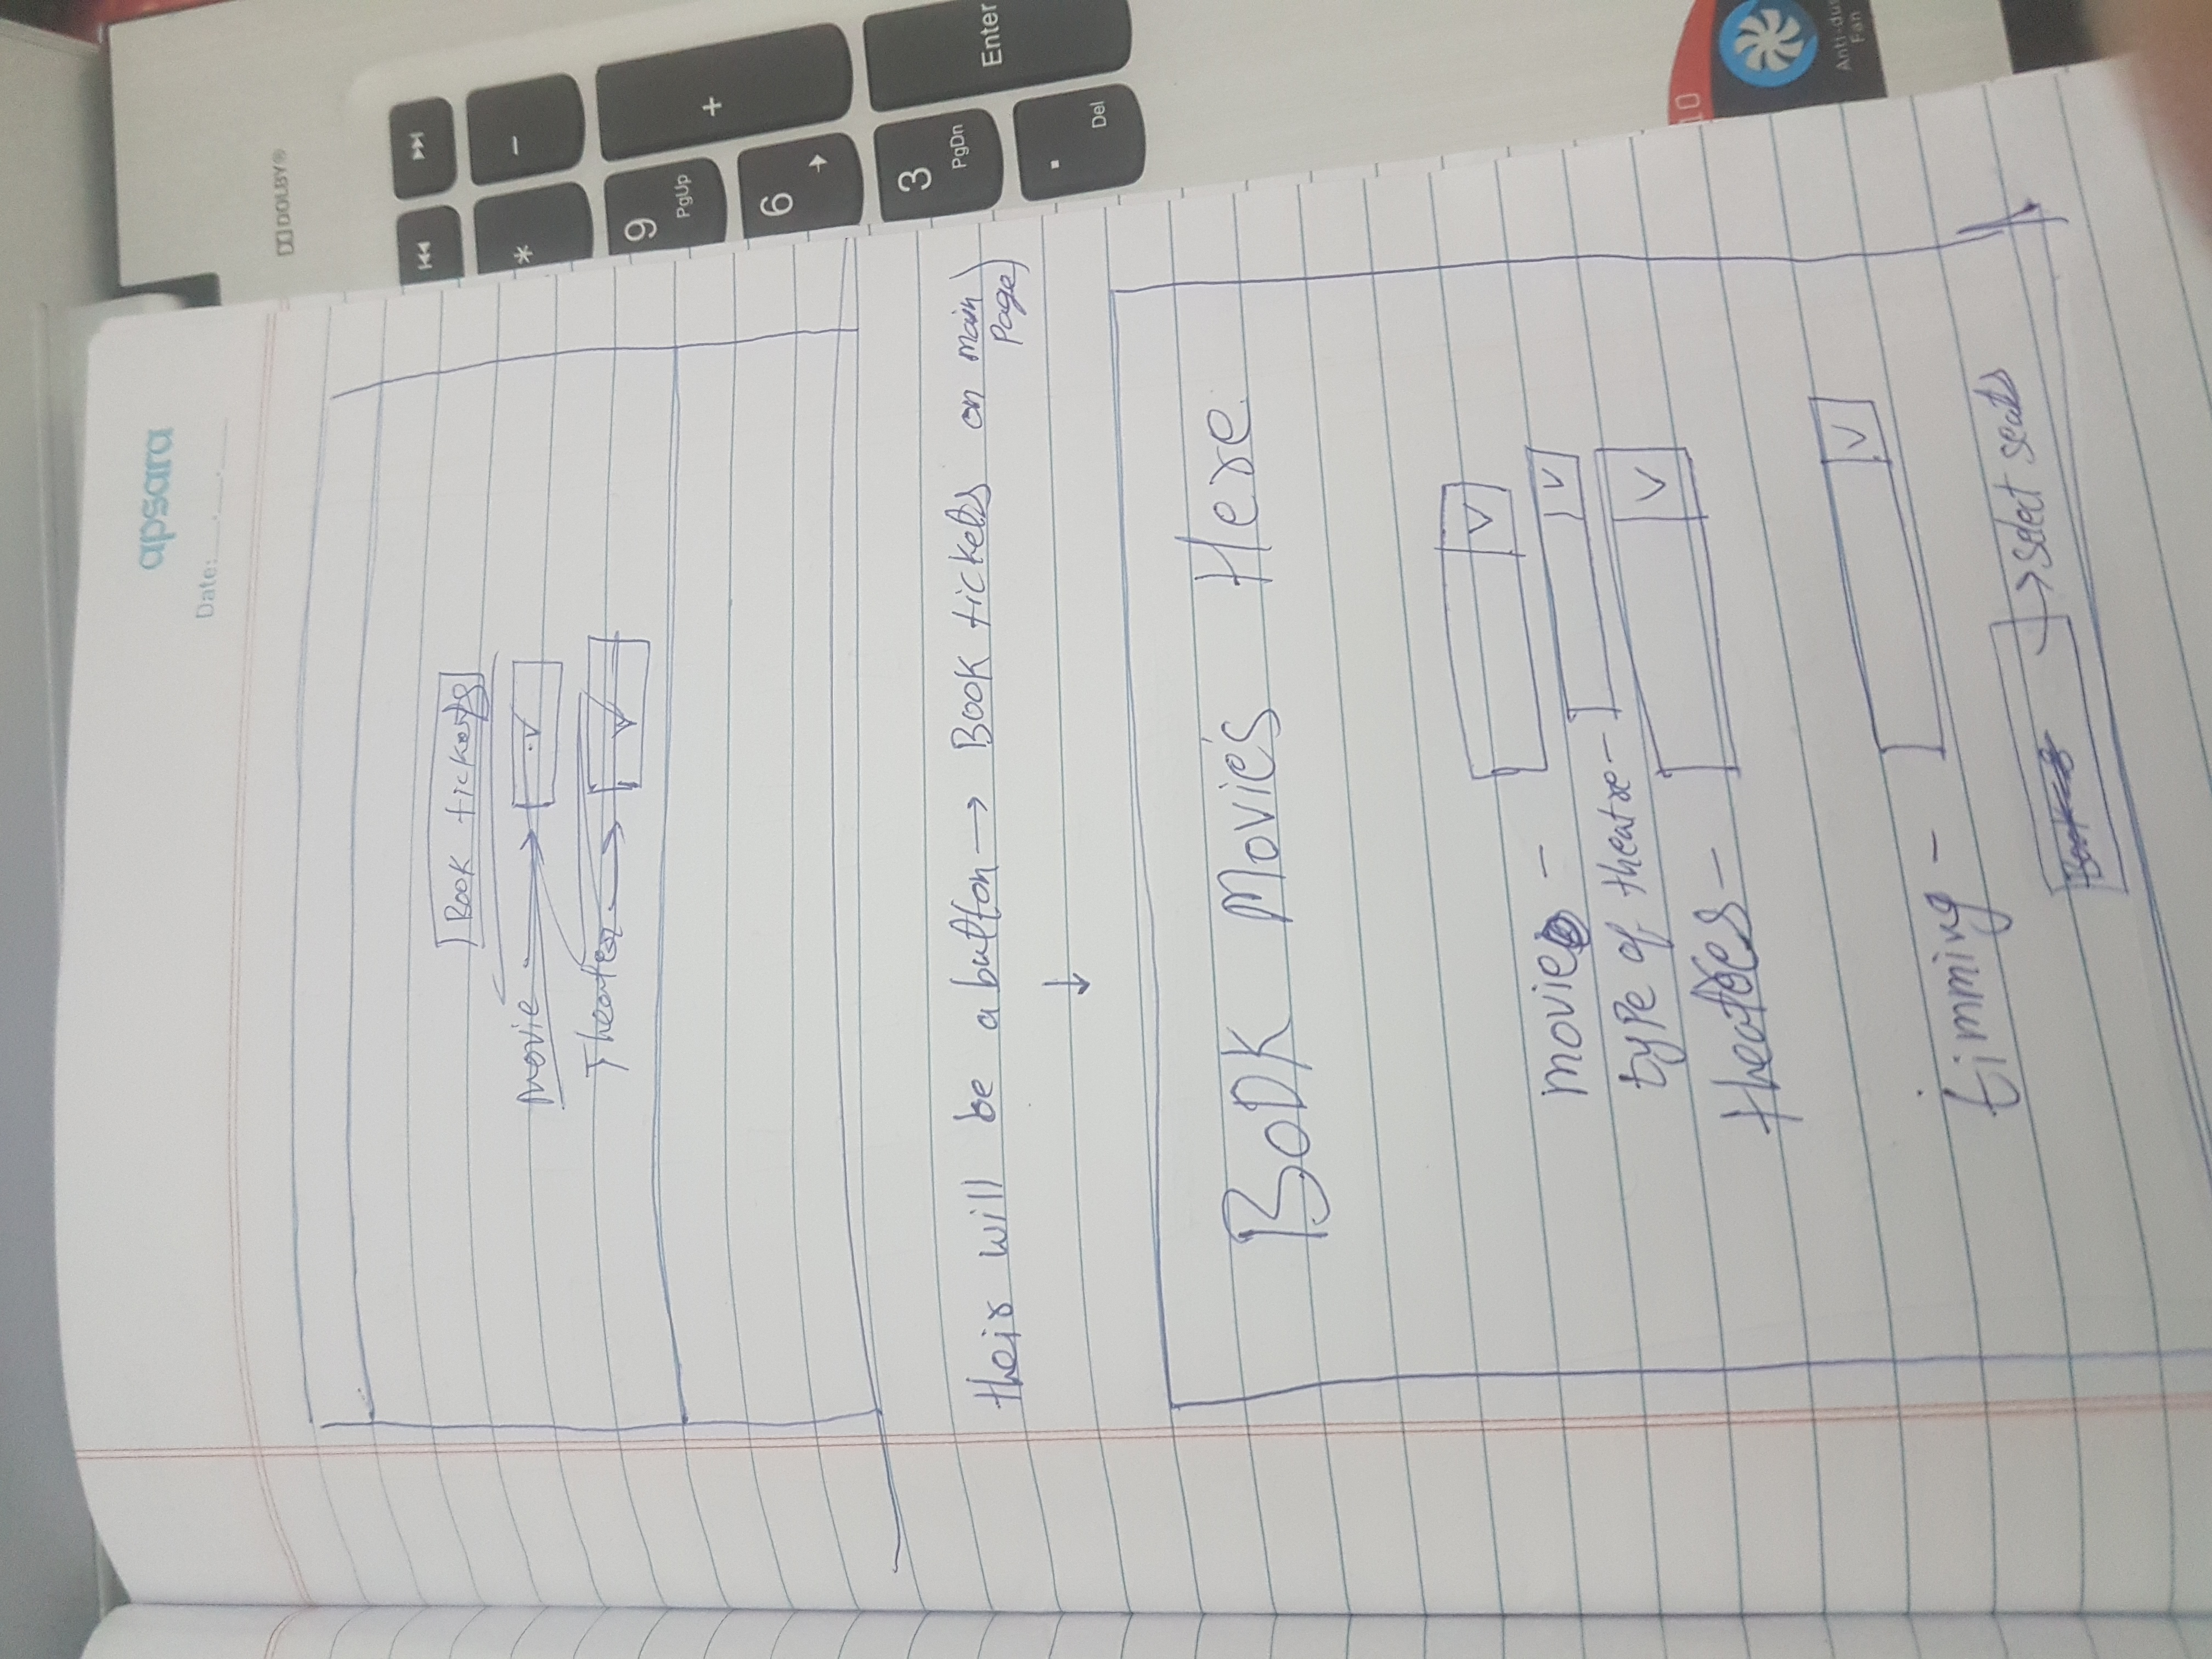 apsara
Date:
DOLBY®
Book tickets
Movie
Theater
their will be a button → Book tickets on main page)
BOOK Movie's Here
movie -
type of theatre -
theatres -
timming -
→ select seats
*
-
9
PgUp
+
6
3
PgDn
Enter
.
Del
10
Anti-dus
Fan